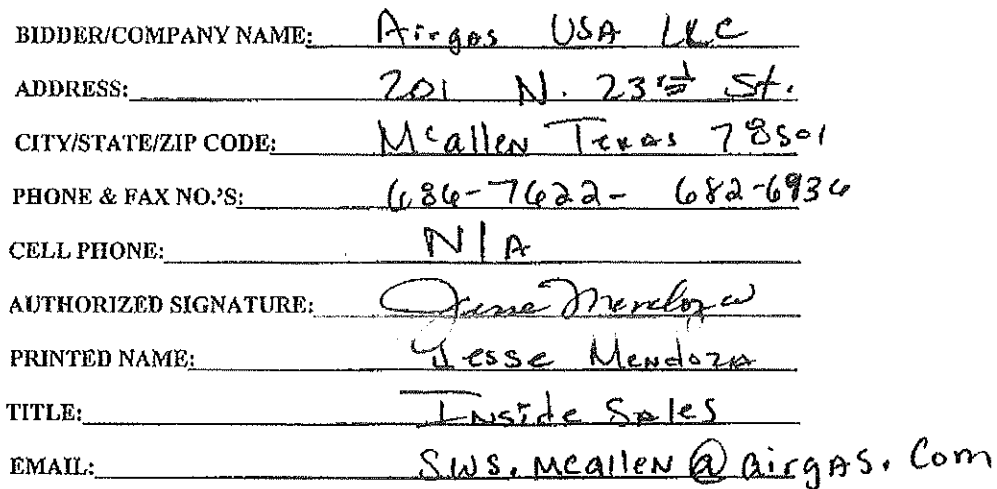 BIDDER/COMPANY NAME: Airgas USA LLC
ADDRESS: 201 N. 23rd St.
CITY/STATE/ZIP CODE: McAllen Texas 78501
PHONE & FAX NO.'S: 686-7622- 682-6936
CELL PHONE: N/A
AUTHORIZED SIGNATURE: Jesse Mendoza
PRINTED NAME: Jesse Mendoza
TITLE: Inside Sales
EMAIL: SWS.mcallen@airgas.com